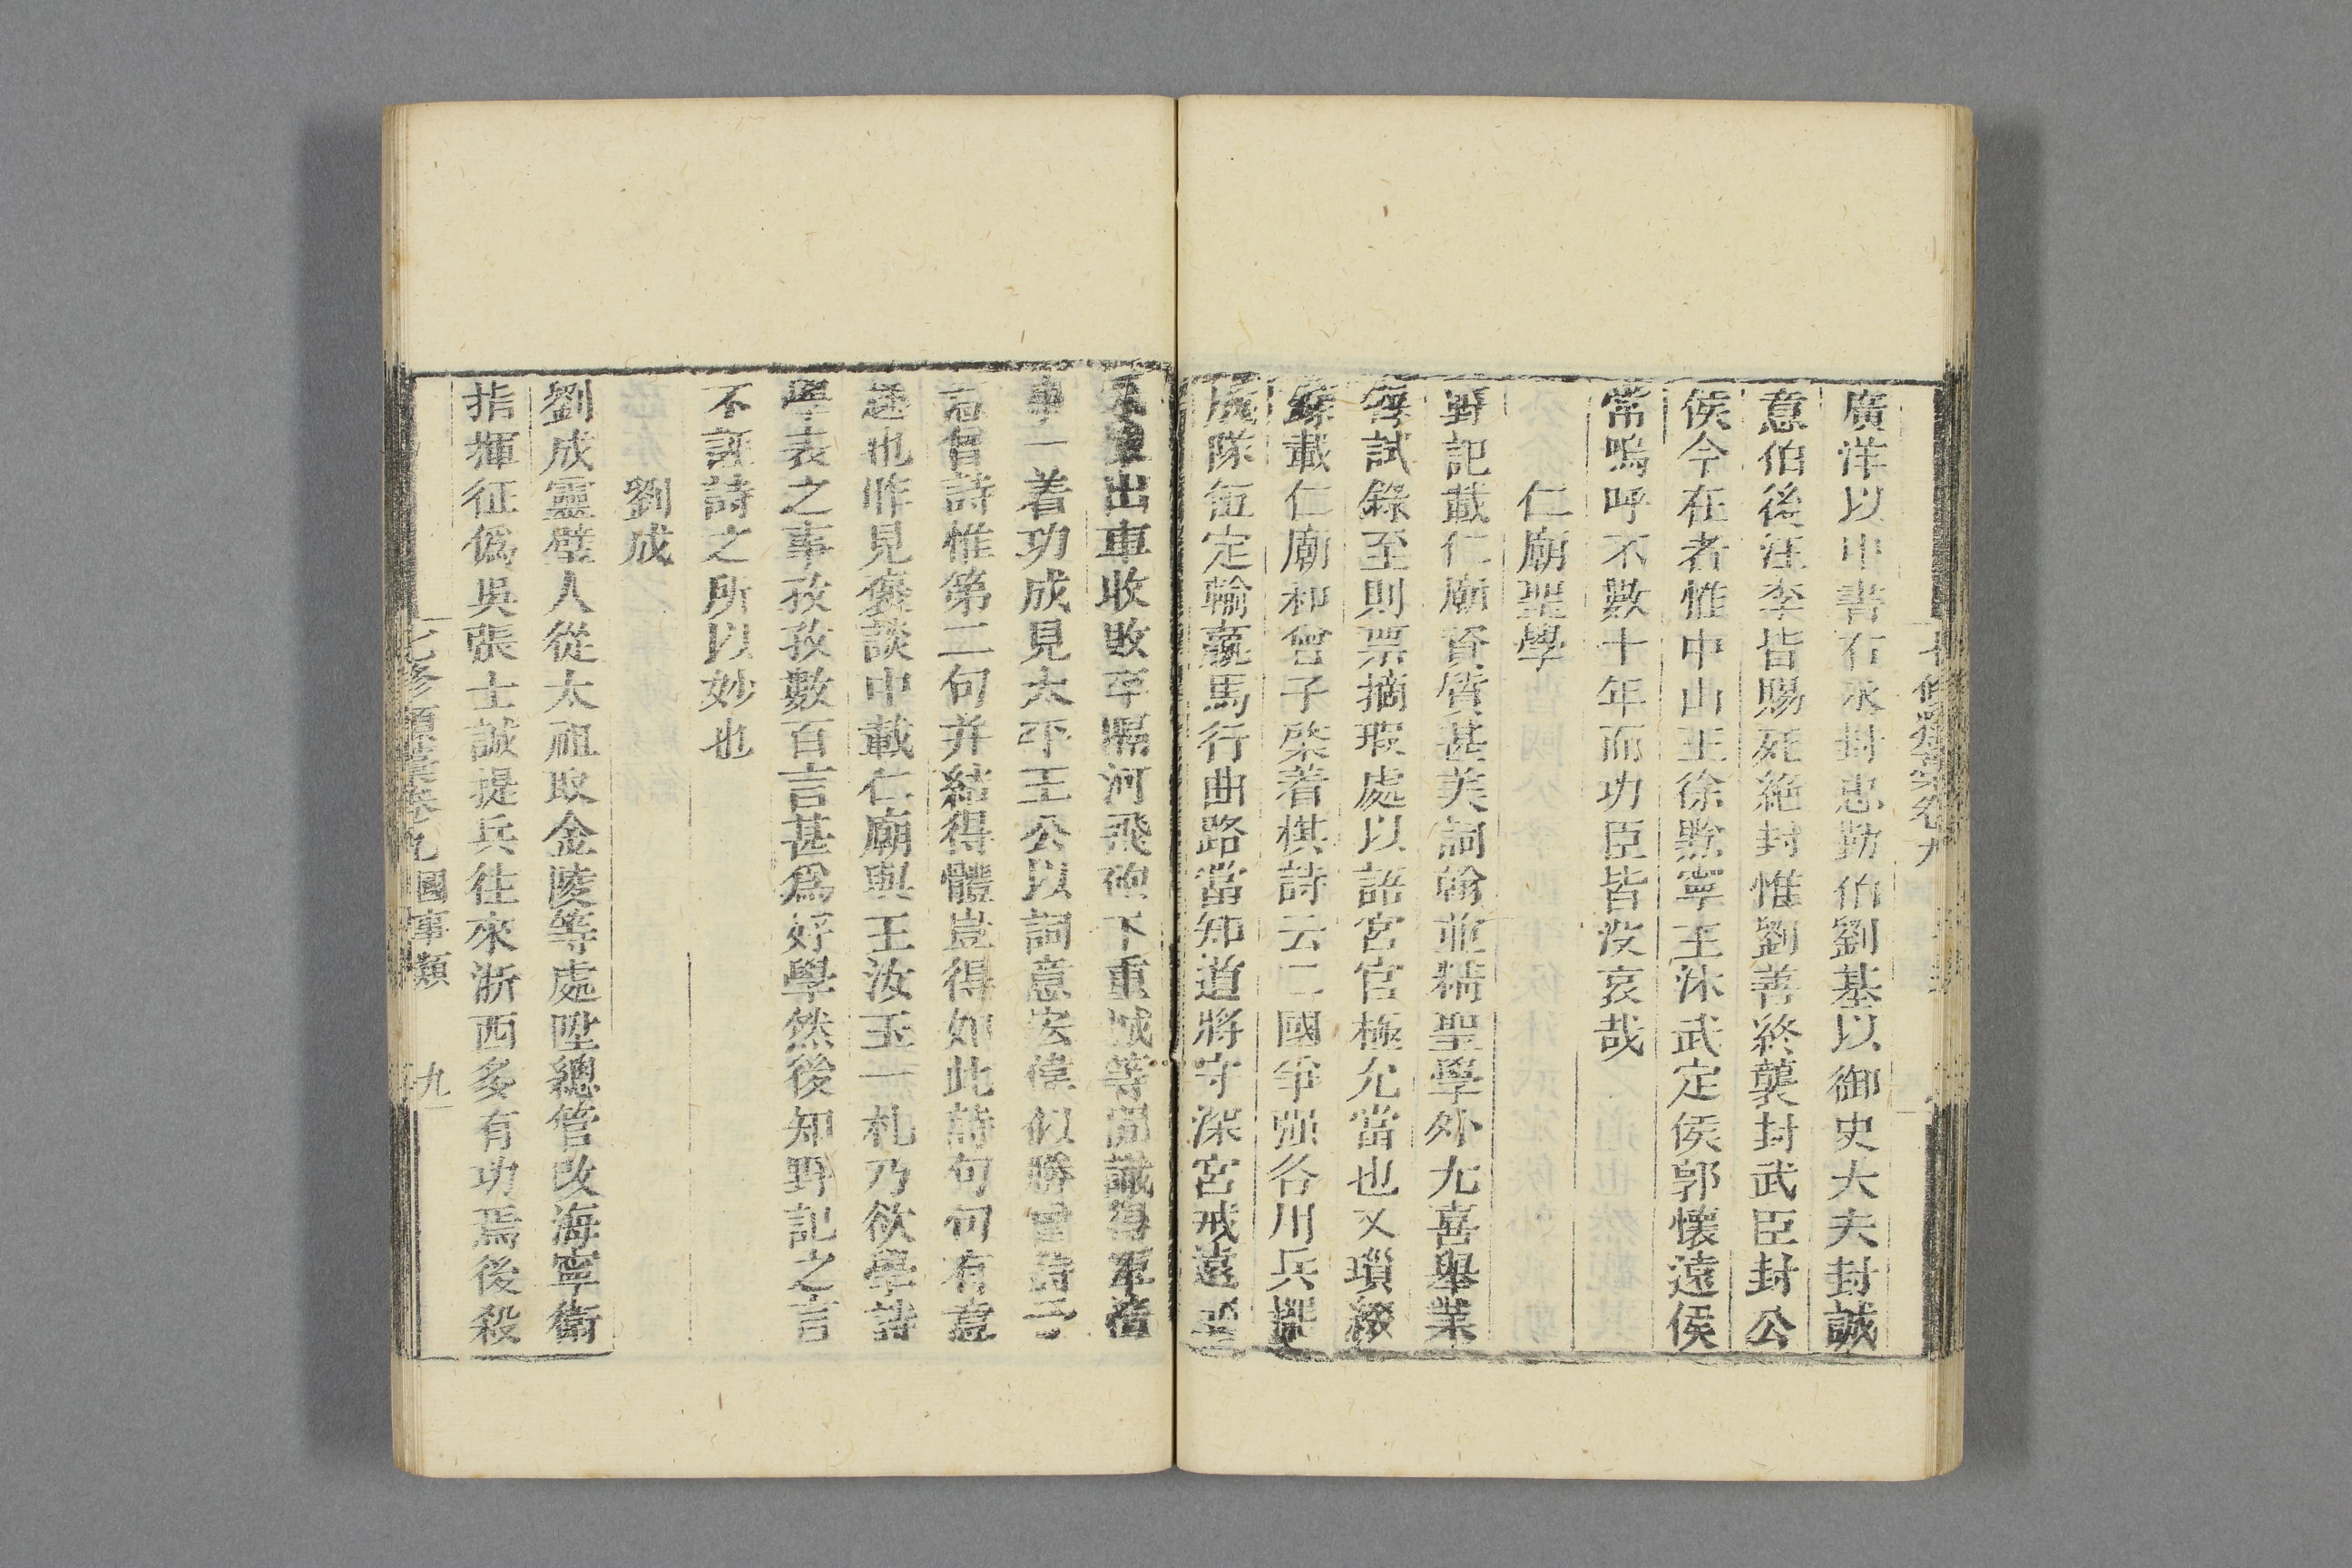 七修類藁卷九
廣洋以中書右丞封忠勤伯劉基以御史大夫封誠
意伯後汪李皆賜死絶封惟劉善終襲封武臣封公
侯今在者惟中山王徐黔寧王沐武定侯郭懷遠侯
常嗚呼不數十年而功臣皆沒哀哉
仁廟聖學
野記載仁廟資質甚美詞翰並精聖學外尤喜舉業
每試錄至則票摘瑕處以語宮官極允當也又瑣綴
錄載仁廟和曾子棨着棋詩云二國爭彊各用兵擺
成隊伍定輸贏馬行曲路當知道將守深宮戒遠
出車收敗卒隔河飛砲下重城等閒識得軍
事一着功成見太平王公以詞意宏偉似勝曾詩予
詩惟第二句并結得體豈得如此詩句句有意
也昨見褒談中載仁廟與王汝玉一札乃欲學詩
學表之事孜孜數百言甚爲好學然後知野記之言
不誣詩之所以妙也
劉成
劉成靈壁人從太祖取金陵等處陞總管改海寧衛
指揮征僞吳張士誠提兵往來浙西多有功焉後殺
七修類藁卷九 國事類 九